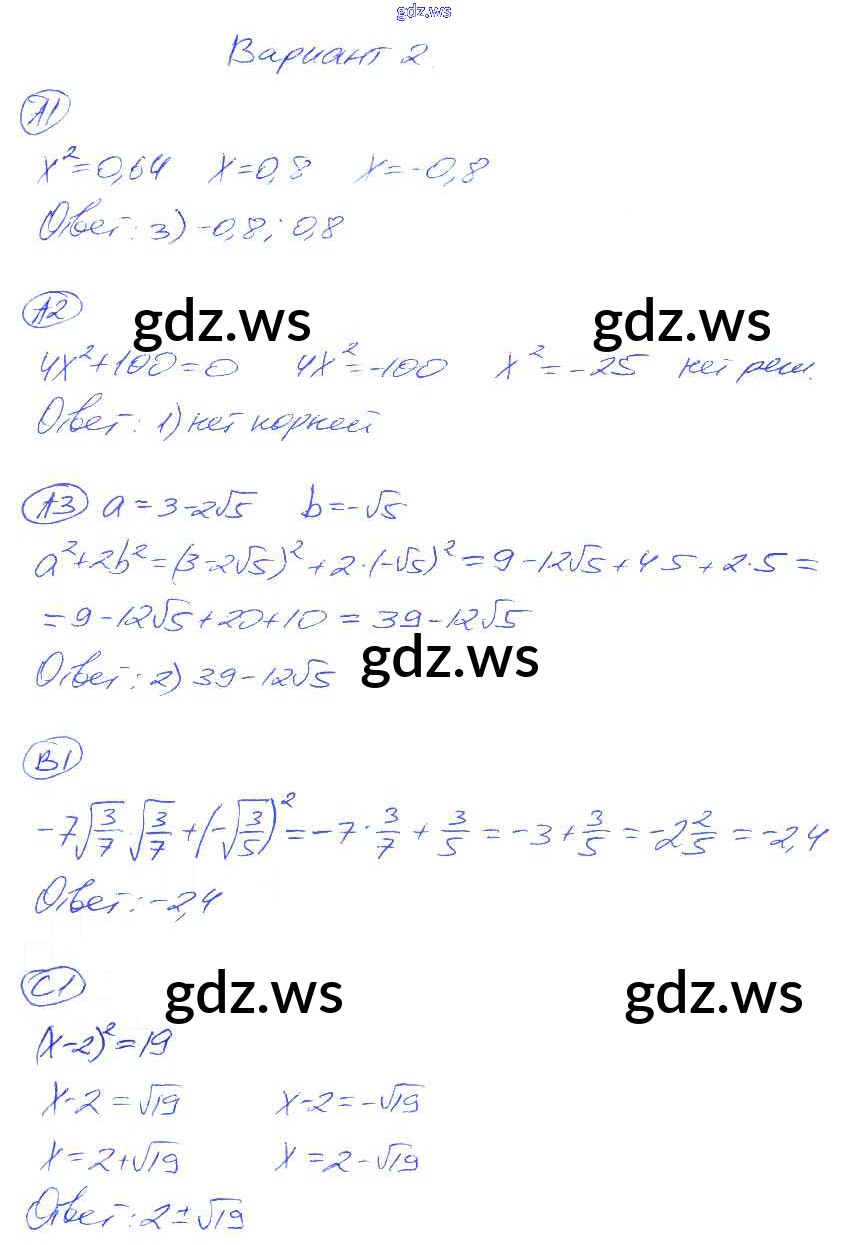 gdz.ws
Вариант 2.
А1
x²=0,64 x=0,8 x=-0,8
Ответ: 3) -0,8; 0,8
А2
gdz.ws gdz.ws
4x²+100=0 4x²=-100 x²=-25 нет реш.
Ответ: 1) нет корней
А3 a=3-2√5 b=-√5
a²+2b²=(3-2√5)²+2·(-√5)²=9-12√5+4·5+2·5=
=9-12√5+20+10=39-12√5
gdz.ws
Ответ: 2) 39-12√5
В1
-7√(3/7)·√(3/7)+(-√(3/5))²=-7·3/7+3/5=-3+3/5=-2 2/5=-2,4
Ответ: -2,4
С1
gdz.ws gdz.ws
(x-2)²=19
x-2=√19 x-2=-√19
x=2+√19 x=2-√19
Ответ: 2±√19